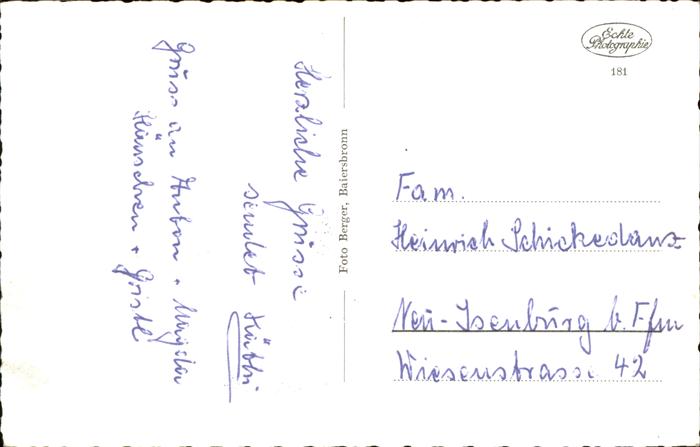 Herzliche Grüsse
sendet Käthi
Gruss an Anton +
Hänschen + Gretl
Foto Berger, Baiersbronn
Echte
Photographie
181
Fam.
Heinrich Schickedanz
Neu-Isenburg b. Ffm
Wiesenstrasse 42